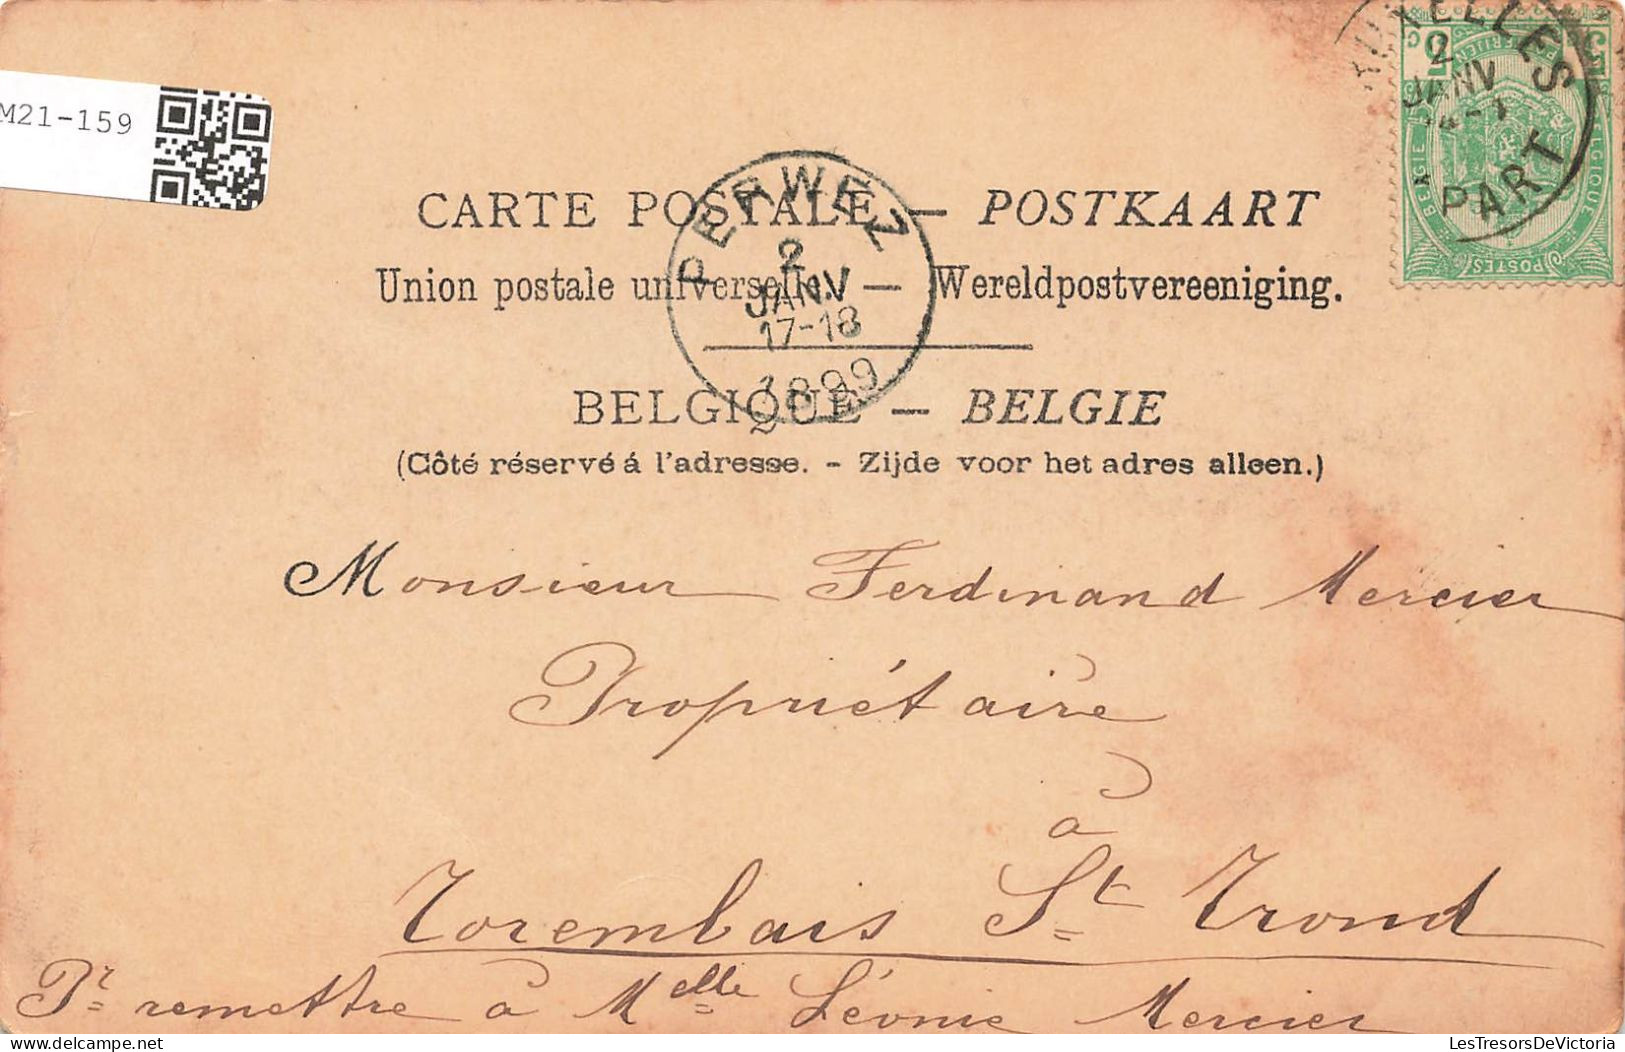 M21-159
BRUXELLES
2
JANV
PART
5 C
POSTES
CARTE POSTALE — POSTKAART
Union postale universelle. — Wereldpostvereeniging.
PERWEZ
2
JANV
17-18
1899
BELGIQUE — BELGIE
(Côté réservé á l'adresse. - Zijde voor het adres alleen.)
Monsieur Ferdinand Mercier
Propriétaire
à
Torembais St Trond
Pr remettre à Melle Léonie Mercier
LesTresorsDeVictoria